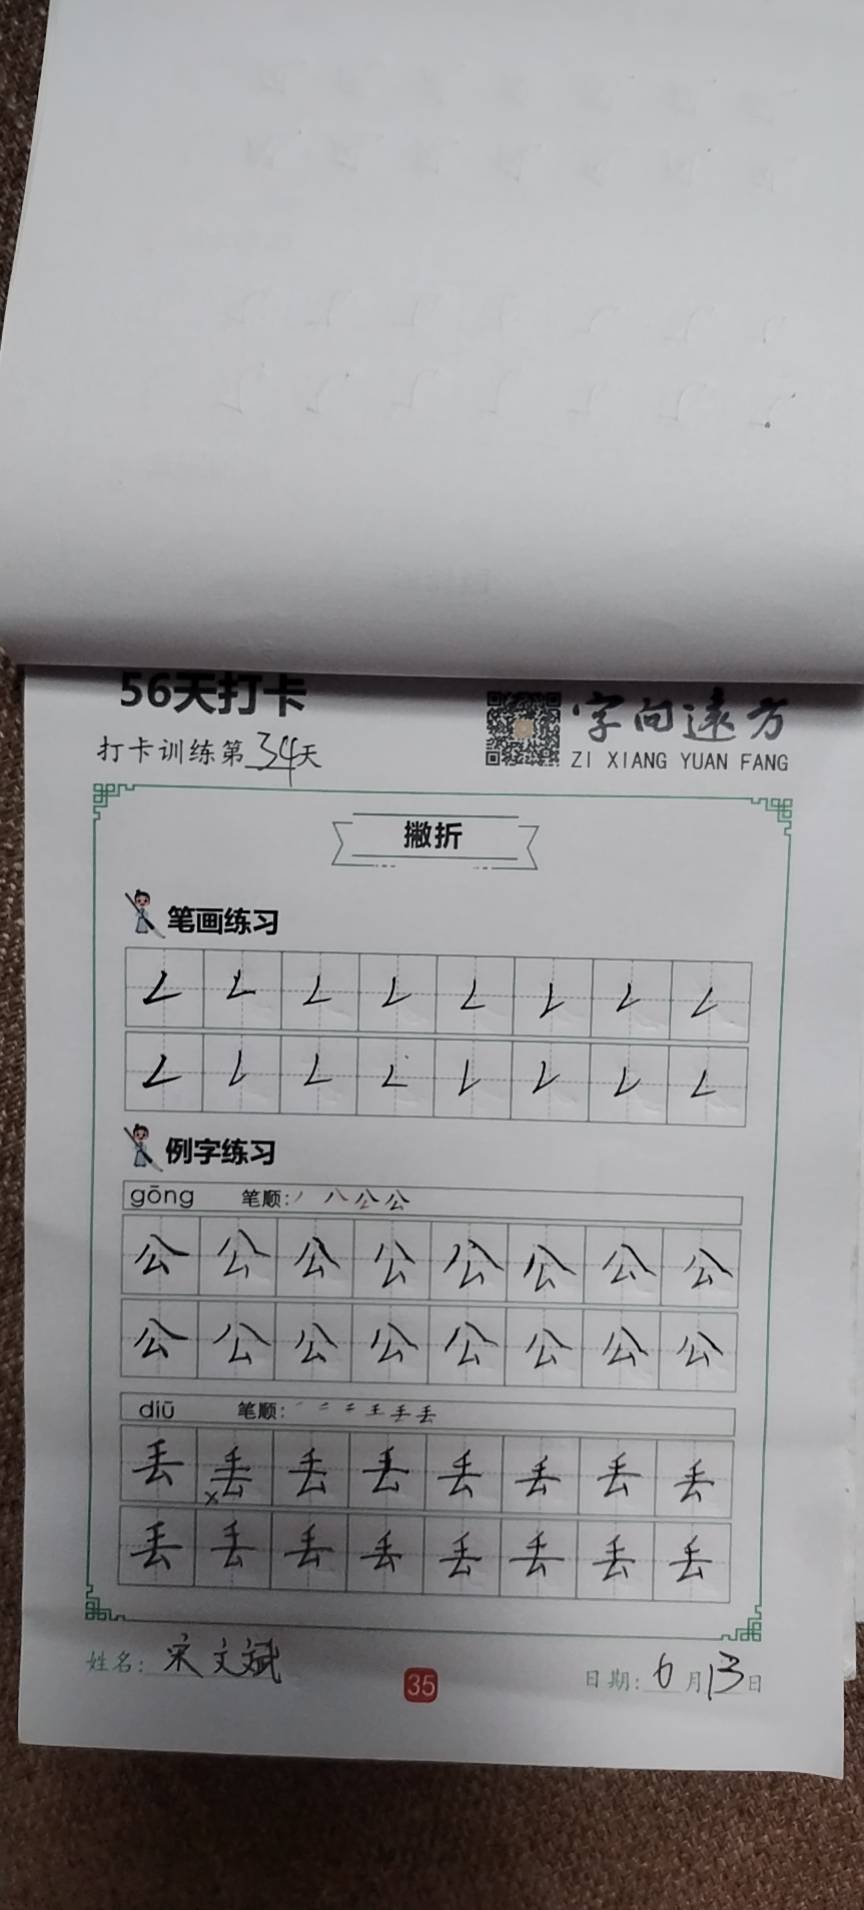 56天打卡
字向远方
打卡训练第34天
ZI XIANG YUAN FANG
撇折
笔画练习
例字练习
gōng 笔顺: 丿 八 公 公
公 公 公 公 公 公 公 公
公 公 公 公 公 公 公 公
diū 笔顺: 王 丢 丢
丢 丢 丢 丢 丢 丢 丢 丢
丢 丢 丢 丢 丢 丢 丢 丢
姓名: 宋文斌
35
日期: 6月13日